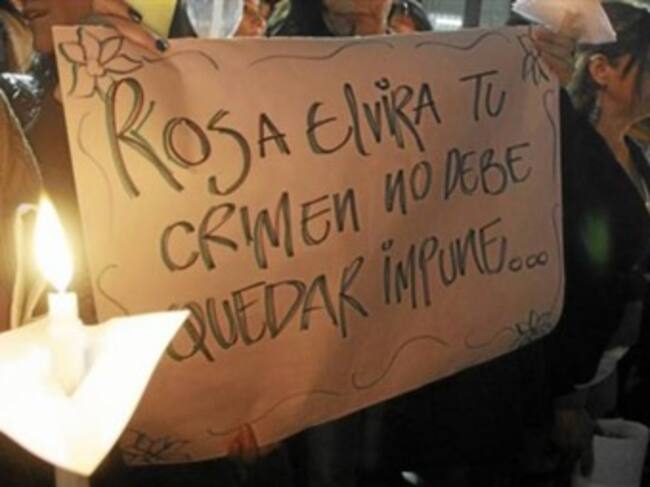 ROSA ELVIRA TU
CRIMEN NO DEBE
QUEDAR IMPUNE...